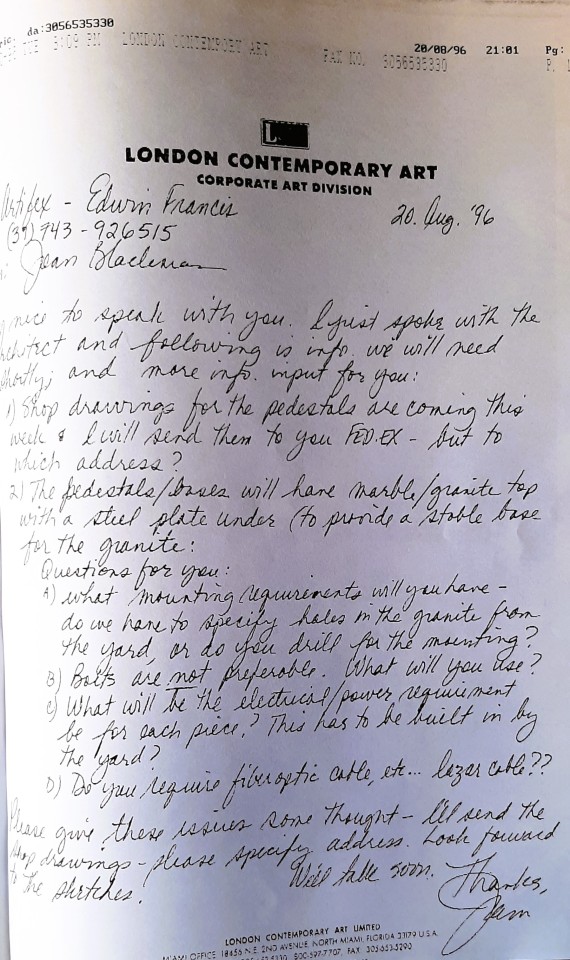 da:3056535330
20/08/96 21:01 Pg:
TUE 3:09 PM LONDON CONTEMPORY ART FAX NO. 3056535330 P.
LONDON CONTEMPORARY ART
CORPORATE ART DIVISION
Artifex - Edwin Francis
20. Aug. '96
(39) 943 - 926515
Jean
nice to speak with you. I just spoke with the
architect and following is info. we will need
shortly; and more info. input for you:
1) Shop drawings for the pedestals are coming this
week & I will send them to you FED.EX - but to
which address?
2) The pedestals/bases will have marble/granite top
with a steel plate under (to provide a stable base
for the granite:
Questions for you:
A) What mounting requirements will you have -
do we have to specify holes in the granite from
the yard, or do you drill for the mounting?
B) Bolts are not preferable. What will you use?
C) What will be the electrical/power requirement
be for each piece? This has to be built in by
the yard?
D) Do you require fiberoptic cable, etc... lazar cable??
Please give these issues some thought - I'll send the
shop drawings - please specify address. Look forward
to the sketches.
Will talk soon.
Thanks,
Jean
LONDON CONTEMPORARY ART LIMITED
MIAMI OFFICE: 18456 N.E. 2ND AVENUE, NORTH MIAMI, FLORIDA 33179 U.S.A.
5330 800-597-7707 FAX: 305-653-5290